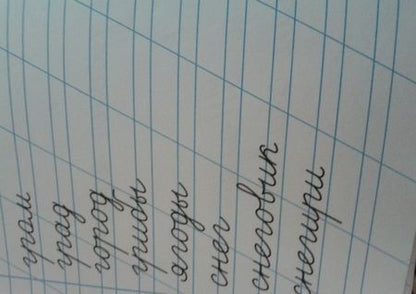 грам
град
город
грибы
ягоды
снег
снеговик
снегири